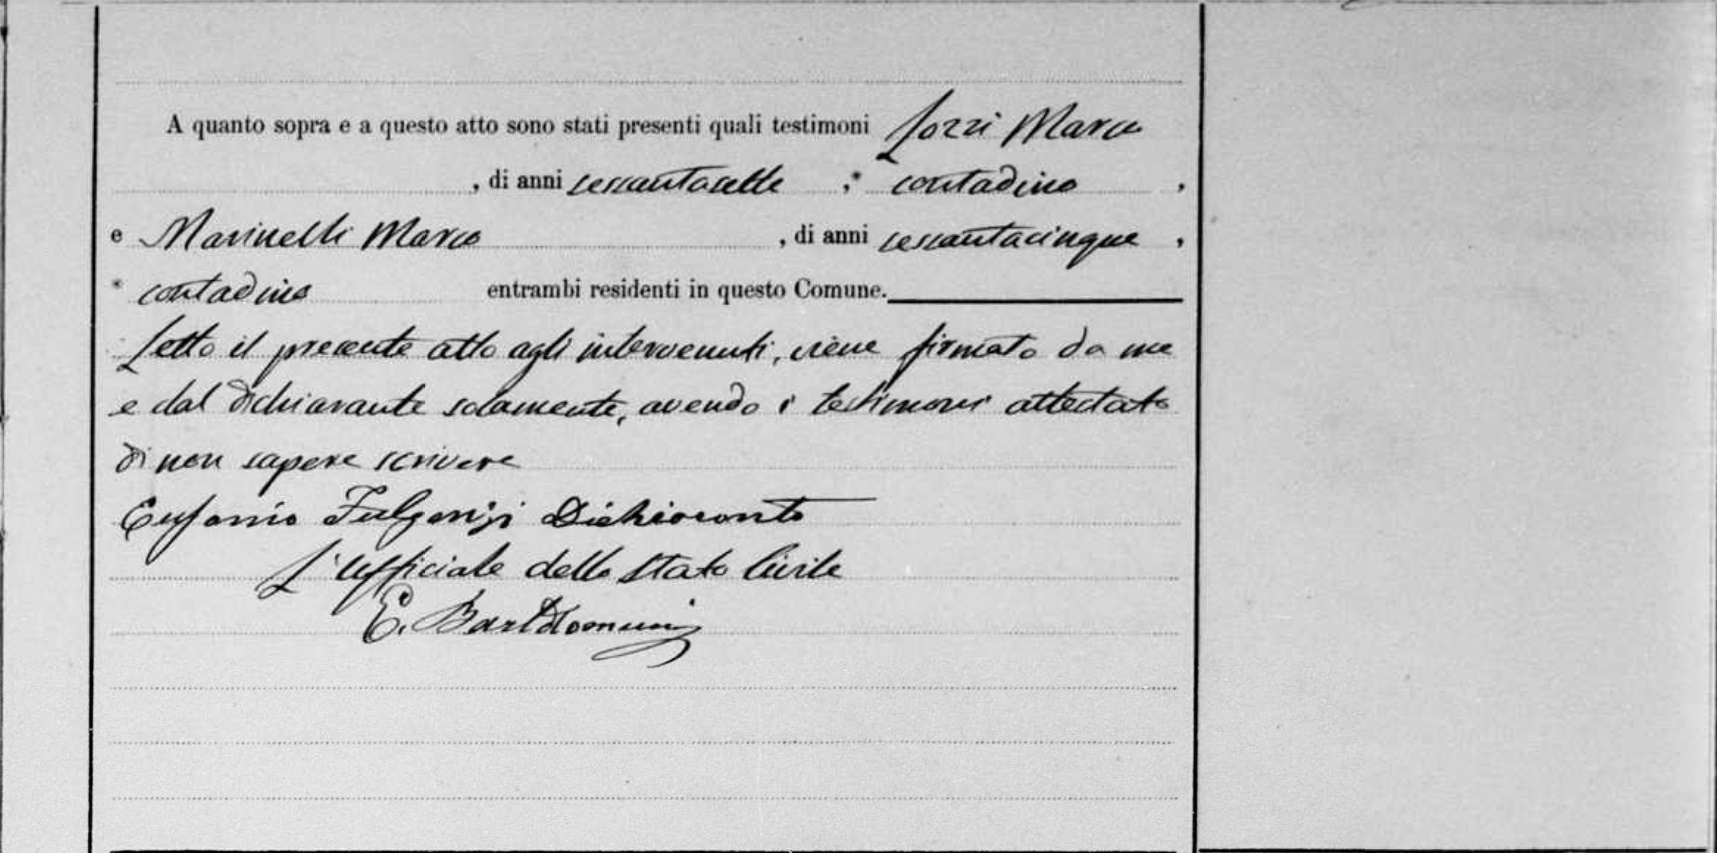 A quanto sopra e a questo atto sono stati presenti quali testimoni Lozzi Marco
, di anni sessantasette , * contadino ,
e Marinelli Marco , di anni sessantacinque ,
* contadino entrambi residenti in questo Comune.
Letto il presente atto agli intervenuti, viene firmato da me
e dal dichiarante solamente, avendo i testimoni attestato
di non sapere scrivere
Eufanio Fulgenzi Dichiarante
L'ufficiale dello Stato Civile
E. Bartolomucci